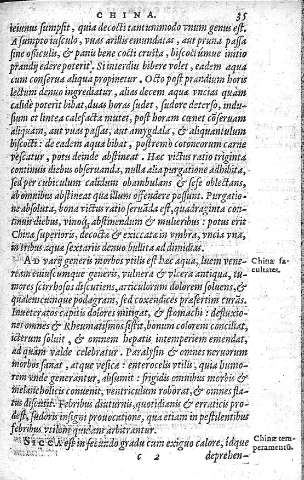 CHINA. 35
ieiunus sumpsit, quia decocti tantummodo vnum genus est.
Assumpto iusculo, vuas arillis emundatas, aut pruna passa
sine ossiculis, & panis bene cocti crusta, biscocti vnius initio
prandij edere poterit. Si interdiu bibere volet, eadem aqua
cum conserua aliqua propinetur. Octo post prandium horis
lectum denuo ingrediatur, alias decem aquæ vncias quam
calidè poterit bibat, duas horas sudet, sudore deterso, indu-
sium et lintea calefacta mutet, post horam cœnet côseruam
aliquam, aut vuas passas, aut amygdala, & aliquantulum
biscocti: de eadem aqua bibat, postremò cotoneorum carne
vescatur, potu deinde abstineat. Hæc victus ratio triginta
continuis diebus obseruanda, nulla alia purgatione adhibita,
sed per cubiculum calidum obambulans & sese oblectans,
ab omnibus abstineat quæ illum offendere possunt. Purgatio-
ne absoluta, bona victus ratio seruãda est, quadraginta con-
tinuis diebus, vino abstinendum & mulieribus: potus erit
China superioris, decoctæ & exiccatæ in vmbra, vncia vna,
in tribus aquæ sextariis denuo bullita ad dimidias.
AD varij generis morbos vtilis est hæc aqua, luem vene-
ream cuiuscumque generis, vulnera & vlcera antiqua, tu-
mores scirrhosos discutiens, articulorum dolorem soluens, &
qualemcumque podagram, sed coxendices præsertim curãs.
Inueteratos capitis dolores mitigat, & stomachi: defluxio-
nes omnes & Rheumatismos sistit, bonum colorem conciliat,
icterum soluit, & omnem hepatis intemperiem emendat,
ad quam valde celebratur. Paralysin & omnes neruorum
morbos sanat, atque vesicæ: enterocelis vtilis, quia humo-
rem vnde generantur, absumit: frigidis omnibus morbis &
melancholicis conuenit, ventriculum roborat, & omnes fla-
tus discutit. Febribus diuturnis, quotidianis & erraticis pro-
dest, sudoris insigni prouocatione, qua etiam in pestilentibus
febribus vtilem quidam arbitrantur.
SICCA est in secundo gradu cum exiguo calore, idque
C 2 deprehen-
China fa-
cultates.
Chinæ tem-
peramentũ.